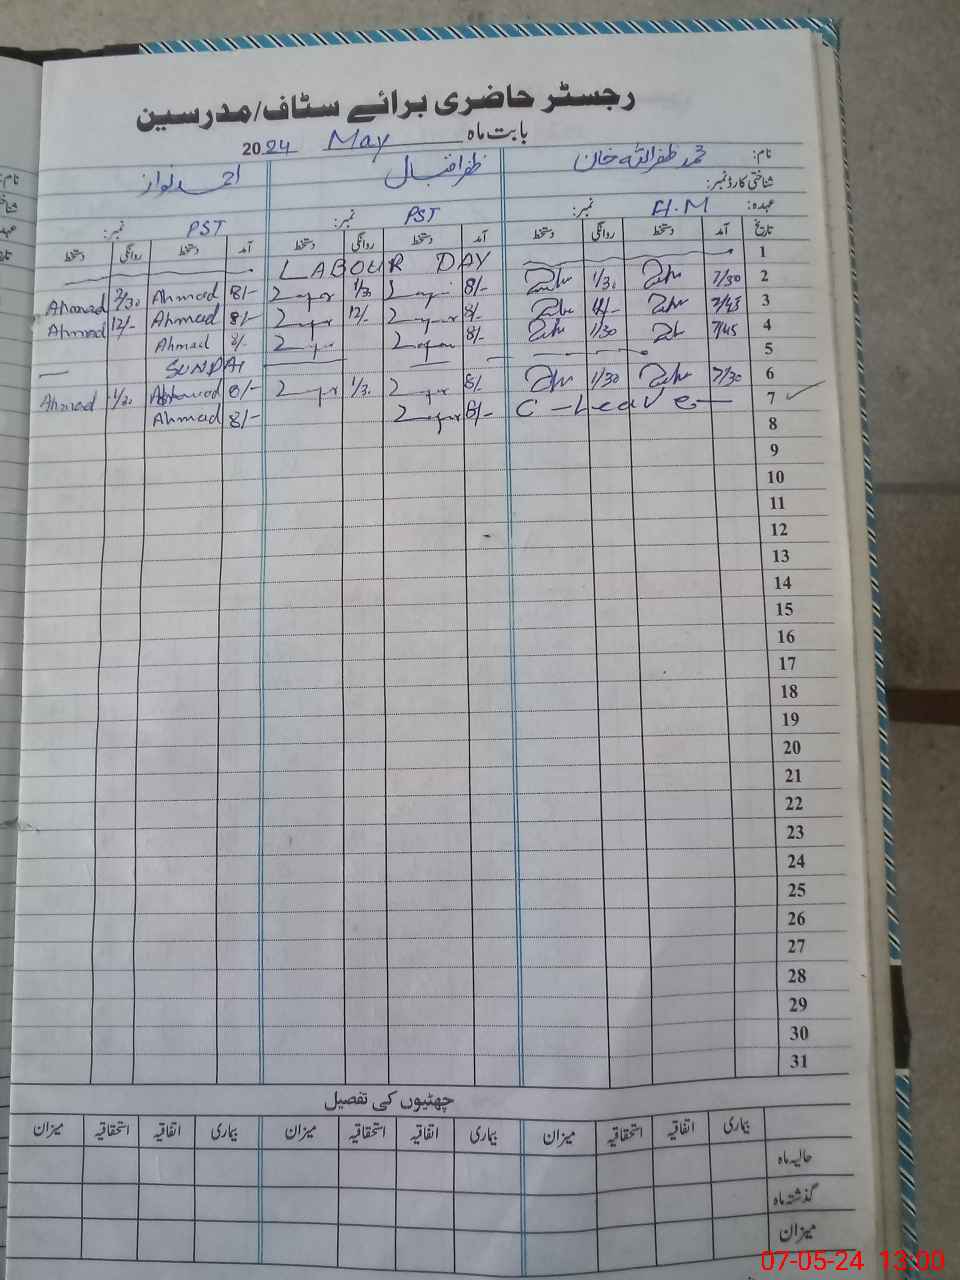 رجسٹر حاضری برائے سٹاف/مدرسین
بابت ماہ May 2024
نام: محمد ظفراللہ خان ظفر اقبال احمد نواز
شناختی کارڈ نمبر:
عہدہ: H.M نمبر: PST نمبر: PST نمبر:
تاریخ آمد دستخط روانگی دستخط آمد دستخط روانگی دستخط آمد دستخط روانگی دستخط
1 LABOUR DAY
2 7/30 1/30 8/- 1/30 8/- Ahmad Ahmad
3 7/45 8/- 12/- 8/- Ahmad 12/- Ahmad
4 7/45 1/30 8/- 8/- Ahmad
5 SUNDAY
6 7/30 1/30 8/- 1/30 8/- Ahmad
7 C-Leave 8/- 8/- Ahmad
8
9
10
11
12
13
14
15
16
17
18
19
20
21
22
23
24
25
26
27
28
29
30
31
چھٹیوں کی تفصیل
بیماری اتفاقیہ استحقاقیہ میزان بیماری اتفاقیہ استحقاقیہ میزان بیماری اتفاقیہ استحقاقیہ میزان
حالیہ ماہ
گذشتہ ماہ
میزان
07-05-24 13:00